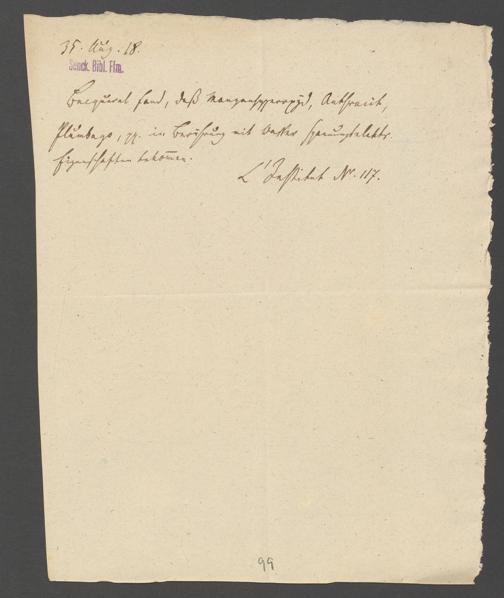 35. Aug. 18.
Senck. Bibl. Ffm.
Becquerel fand, daß Manganhyperoxyd, Anthracit,
Plumbago, pp. in Berührung mit Wasser
Eigenschaften bekom̅en.
L'Institut N. 117.
99